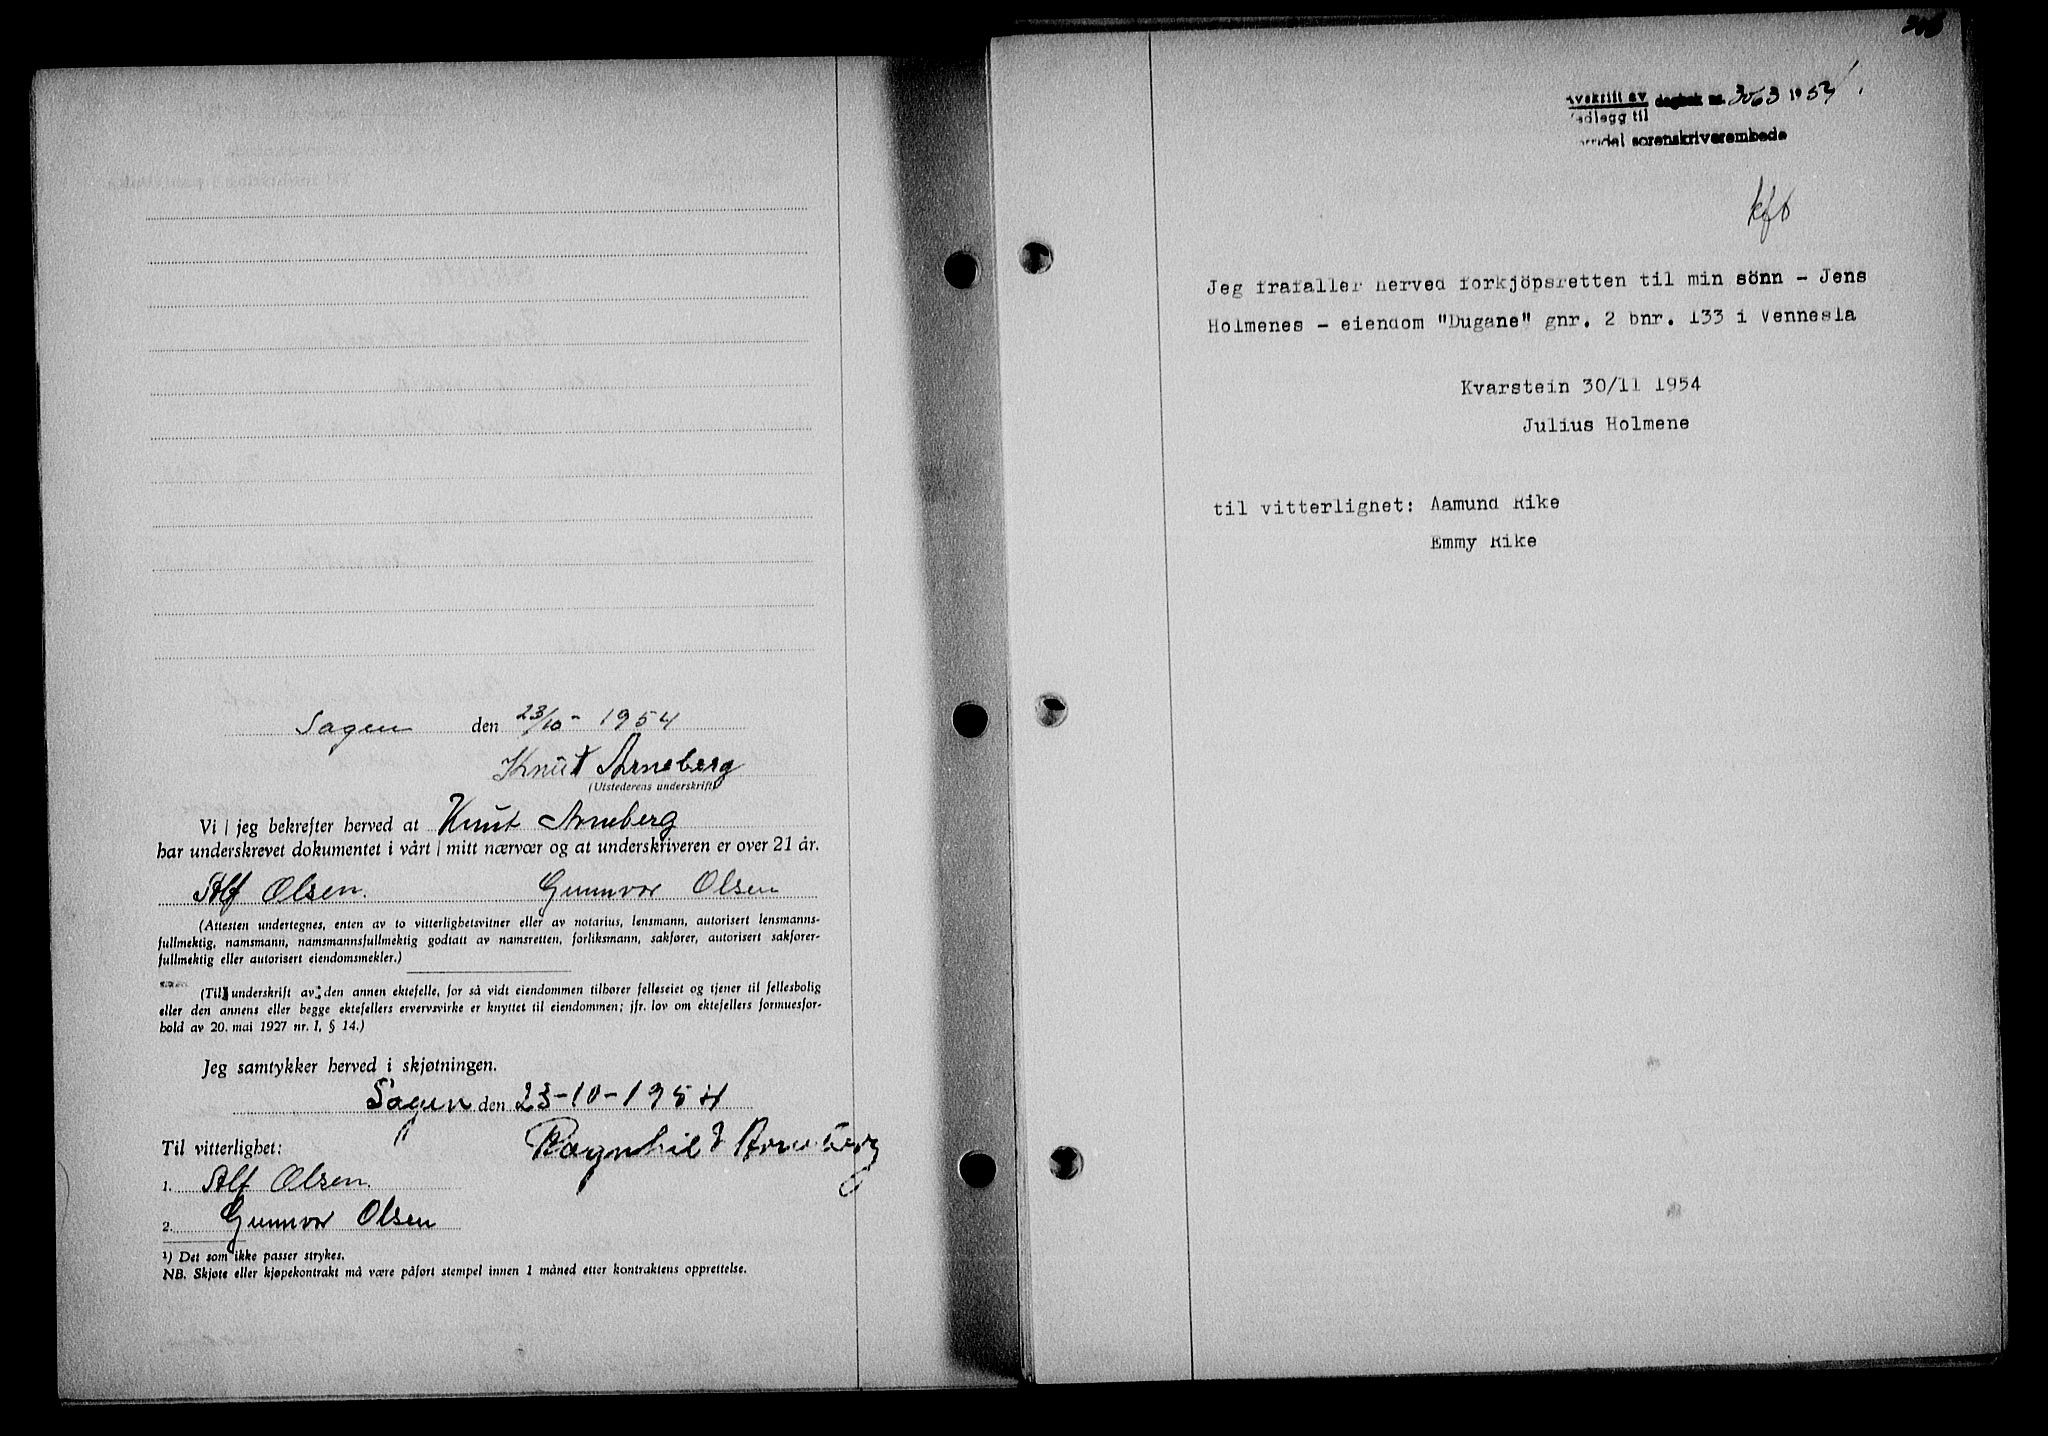 Sagen den 23/10 - 1954
Knut Arneberg
(Utstederens underskrift)
Vi / jeg bekrefter herved at Knut Arneberg
har underskrevet dokumentet i vårt / mitt nærvær og at underskriveren er over 21 år.
Alf Olsen. Gunnvor Olsen
(Attesten undertegnes, enten av to vitterlighetsvitner eller av notarius, lensmann, autorisert lensmanns-
fullmektig, namsmann, namsmannsfullmektig godtatt av namsretten, forliksmann, sakfører, autorisert sakfører-
fullmektig eller autorisert eiendomsmekler.)
(Til underskrift av den annen ektefelle, for så vidt eiendommen tilhører felleseiet og tjener til fellesbolig
eller den annens eller begge ektefellers ervervsvirke er knyttet til eiendommen; jfr. lov om ektefellers formuesfor-
hold av 20. mai 1927 nr. 1, § 14.)
Jeg samtykker herved i skjøtningen.
Sagen den 23-10-1954
Til vitterlighet: Ragnhild Arneberg
1. Alf Olsen.
2. Gunnvor Olsen
¹) Det som ikke passer strykes.
NB. Skjøte eller kjøpekontrakt må være påført stempel innen 1 måned etter kontraktens opprettelse.
avskrift av dagbok nr. 3063 1954
edlegg til
sorenskriverembede
Jeg frafaller herved forkjöpsretten til min sönn - Jens
Holmenes - eiendom "Dugane" gnr. 2 bnr. 133 i Vennesla
Kvarstein 30/11 1954
Julius Holmene
til vitterlighet: Aamund Rike
Emmy Rike